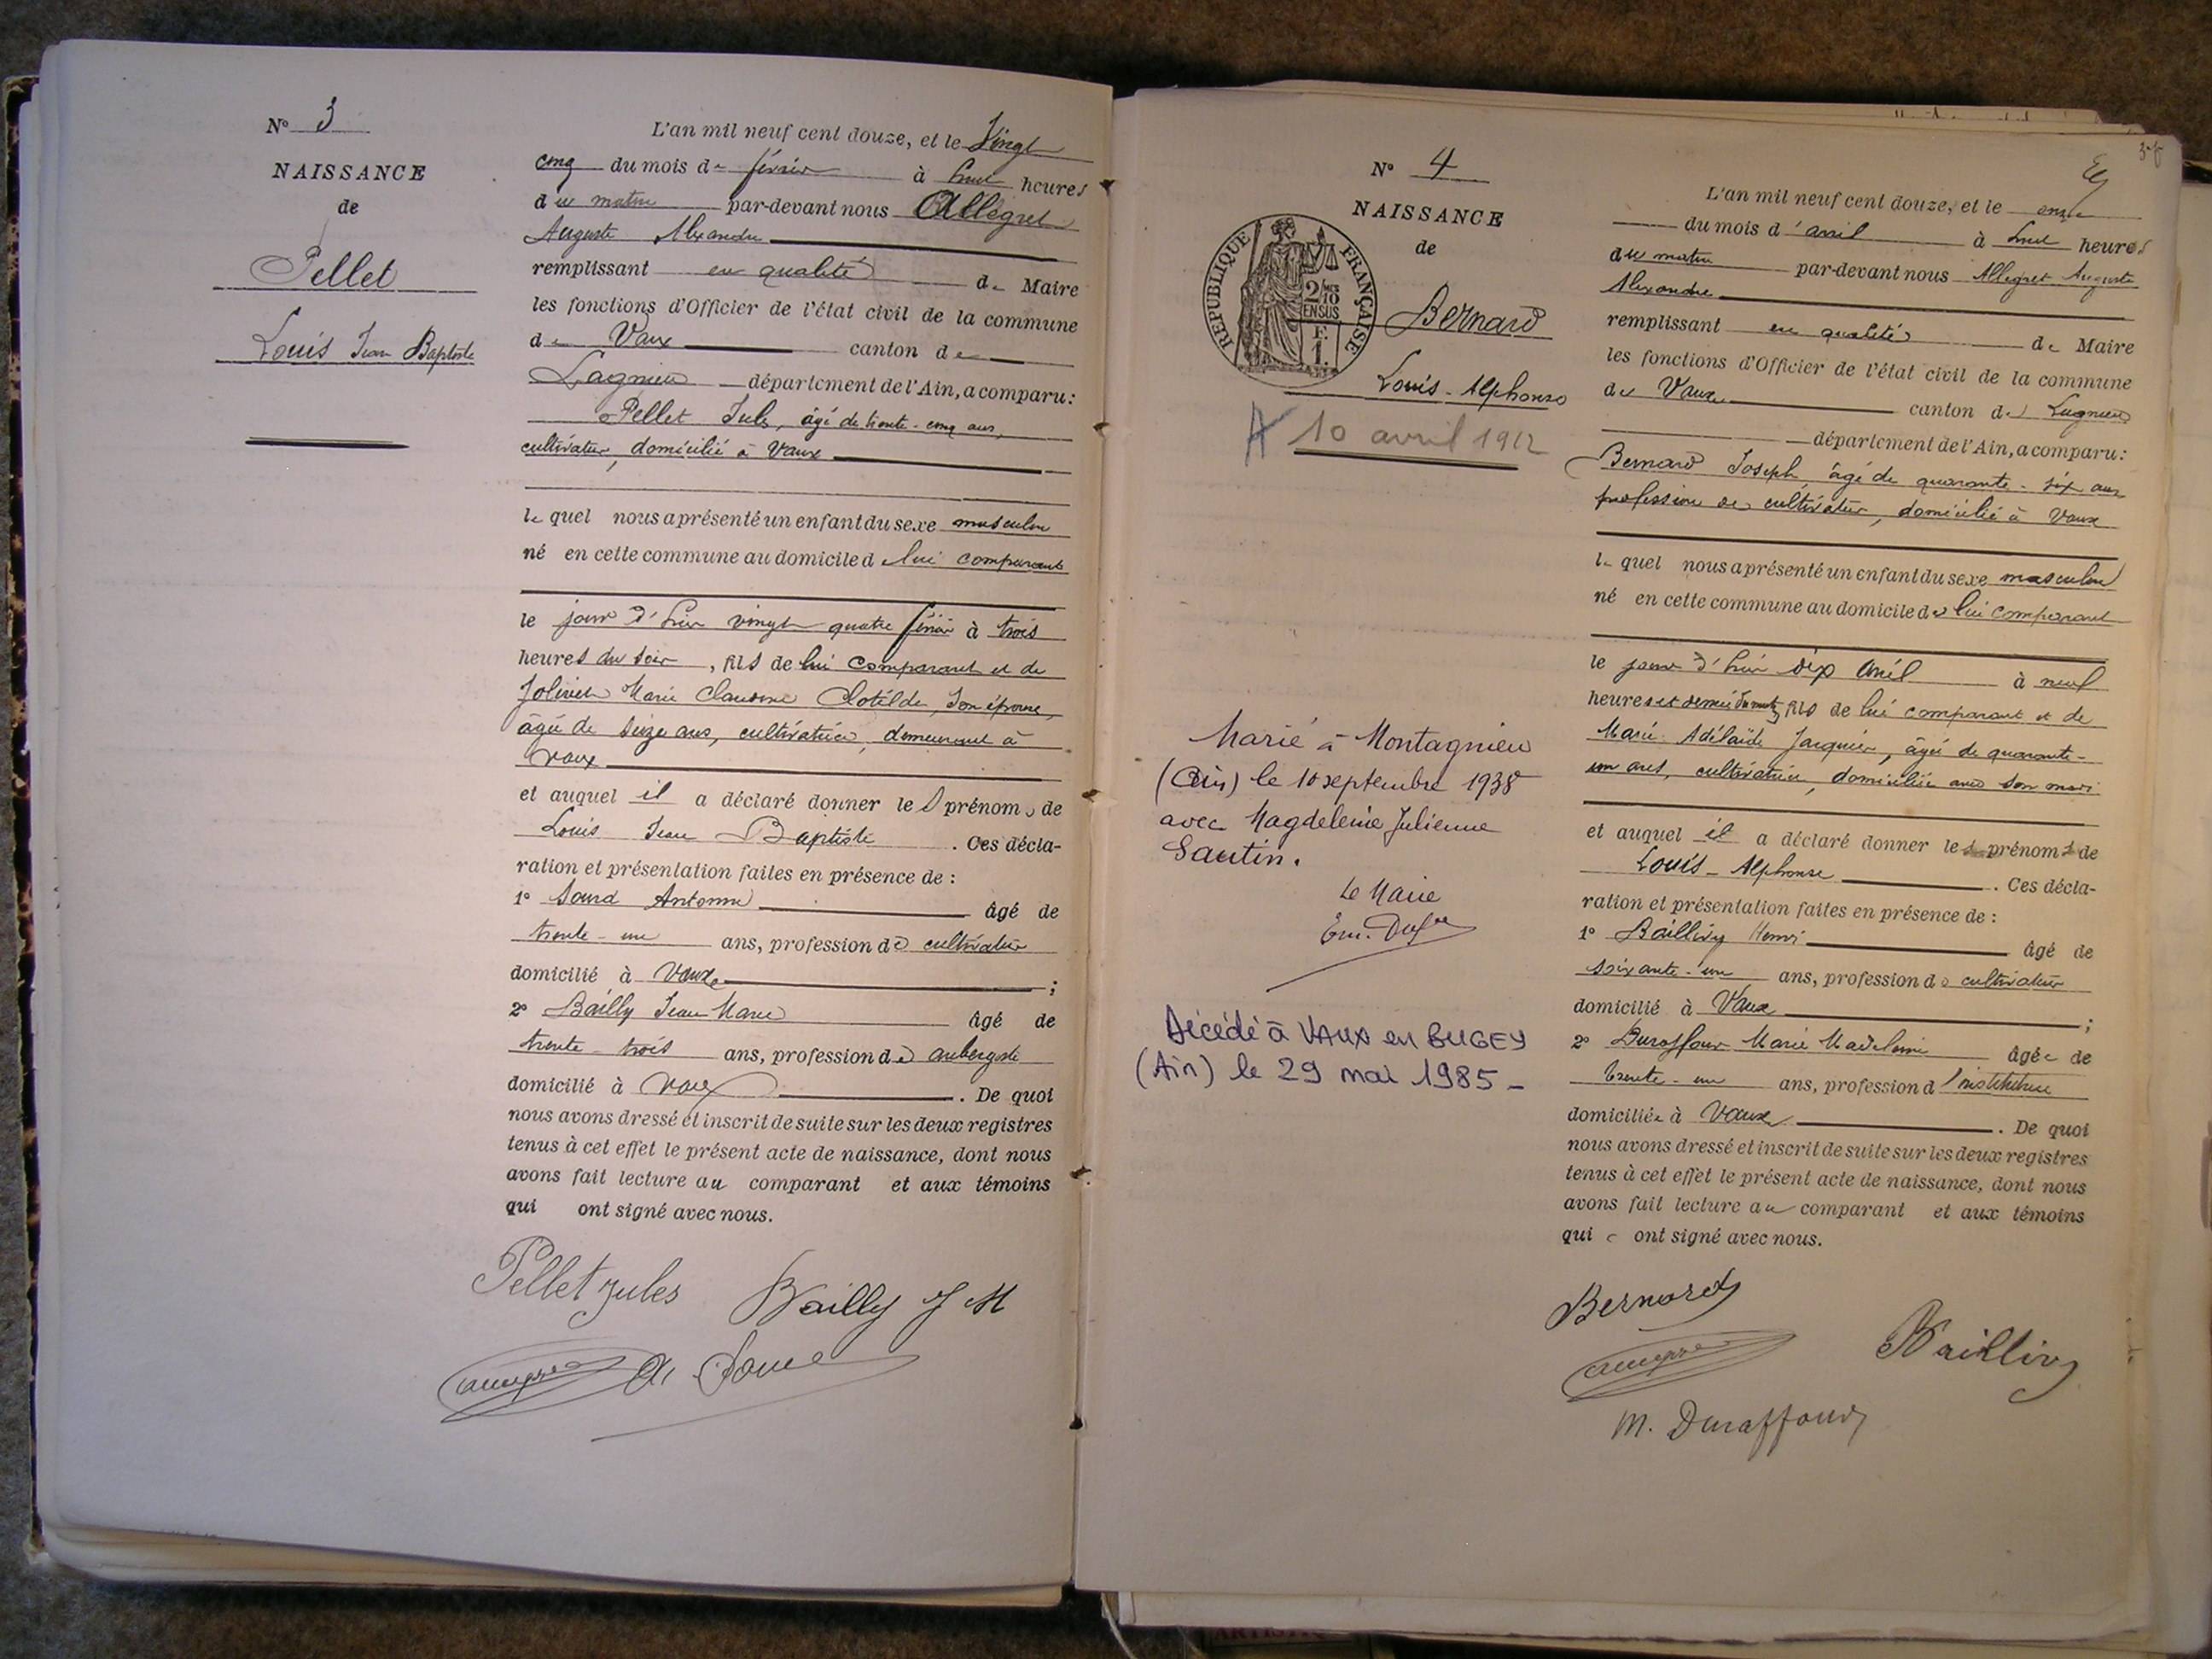 N° 3
NAISSANCE
de
Pellet
Louis Jean Baptiste
L'an mil neuf cent douze, et le Vingt
cinq du mois de février à huit heures
du matin par-devant nous Allégret
Auguste Alexandre
remplissant en qualité de Maire
les fonctions d'Officier de l'état civil de la commune
de Vaux canton de
Lagnieu département de l'Ain, a comparu:
Pellet Jules, âgé de trente-cinq ans,
cultivateur, domicilié à Vaux
lequel nous a présenté un enfant du sexe masculin
né en cette commune au domicile de lui comparant
le jour d'hier vingt quatre février à trois
heures du soir, fils de lui comparant et de
Marie Claudine Clotilde, son épouse,
âgée de seize ans, cultivatrice, demeurant à
Vaux
et auquel il a déclaré donner les prénoms de
Louis Jean Baptiste. Ces décla-
ration et présentation faites en présence de :
1° Sourd Antoine âgé de
trente-un ans, profession de cultivateur
domicilié à Vaux ;
2° Bailly Jean Marie âgé de
trente-trois ans, profession de aubergiste
domicilié à Vaux. De quoi
nous avons dressé et inscrit de suite sur les deux registres
tenus à cet effet le présent acte de naissance, dont nous
avons fait lecture au comparant et aux témoins
qui ont signé avec nous.
Pellet Jules Bailly J M
N° 4
NAISSANCE
de
REPUBLIQUE FRANÇAISE
2/10
EN SUS
F.
1.
Bernard
Louis-Alphonse
10 avril 1912
Marié à Montagnieu
(Ain) le 10 septembre 1938
avec Magdeleine Julienne
Santin.
Le Maire
Décédé à VAUX en BUGEY
(Ain) le 29 mai 1985-
L'an mil neuf cent douze, et le onze
du mois d'avril à huit heures
du matin par-devant nous Allegret Auguste
Alexandre
remplissant en qualité de Maire
les fonctions d'Officier de l'état civil de la commune
de Vaux canton de Lagnieu
département de l'Ain, a comparu:
Bernard Joseph, âgé de quarante-six ans
profession de cultivateur, domicilié à Vaux
lequel nous a présenté un enfant du sexe masculin
né en cette commune au domicile de lui comparant
le jour d'hier dix avril à neuf
heures et demie du matin, fils de lui comparant et de
Marie Adélaïde Jacquier, âgée de quarante-
un ans, cultivatrice, domiciliée avec son mari
et auquel il a déclaré donner les prénoms de
Louis-Alphonse. Ces décla-
ration et présentation faites en présence de :
1° Baillivy Henri âgé de
soixante-un ans, profession de cultivateur
domicilié à Vaux ;
2° Duraffour Marie Madeleine âgée de
trente-un ans, profession d'institutrice
domiciliée à Vaux. De quoi
nous avons dressé et inscrit de suite sur les deux registres
tenus à cet effet le présent acte de naissance, dont nous
avons fait lecture au comparant et aux témoins
qui ont signé avec nous.
Bernard
Baillivy
M. Duraffour